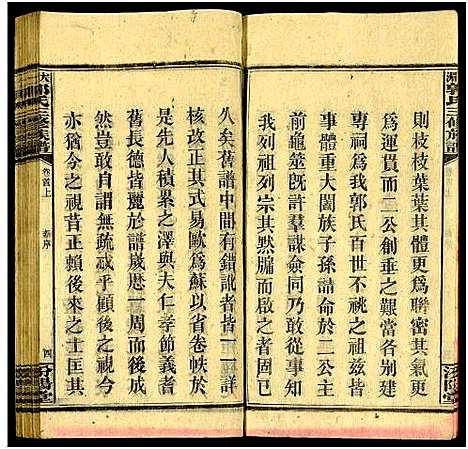 則枝枝葉葉其體更爲聯密其氣更
爲運貫而二公創垂之艱當各別建
專祠爲我郭氏百世不祧之祖祠宇
事體重大闔族子孫請命於二公主
前龜筮旣許羣謀僉同乃敢重修焉
我列祖列宗其默牖而啟之者固已
久矣舊譜中間有錯訛者皆一一詳
核改正其式易歐爲蘇以省卷帙於
是先人積累之澤與夫仁孝節義者
舊長德皆麗於譜歲歷一周而後成
然豈敢自謂無疏哉乎顧後之視今
亦猶今之視昔正賴後來之士匡其
郭氏三修族譜
卷首上
序
四
汾陽堂